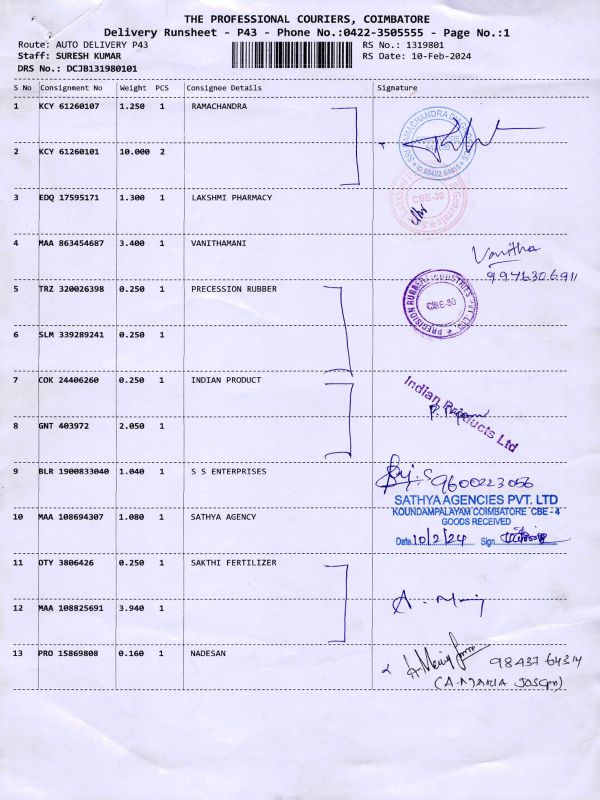 THE PROFESSIONAL COURIERS, COIMBATORE
Delivery Runsheet - P43 - Phone No.:0422-3505555 - Page No.:1
Route: AUTO DELIVERY P43 RS No.: 1319801
Staff: SURESH KUMAR RS Date: 10-Feb-2024
DRS No.: DCJB131980101
S No Consignment No Weight PCS Consignee Details Signature
1 KCY 61260107 1.250 1 RAMACHANDRA
2 KCY 61260101 10.000 2
3 EDQ 17595171 1.300 1 LAKSHMI PHARMACY
CBE-30
4 MAA 863454687 3.400 1 VANITHAMANI Vanitha
9976306911
5 TRZ 320026398 0.250 1 PRECESSION RUBBER
PRECISION RUBBER INDUSTRIES PVT. LTD.
CBE-30
6 SLM 339289241 0.250 1
7 COK 24406260 0.250 1 INDIAN PRODUCT
Indian Products Ltd
8 GNT 403972 2.050 1
9 BLR 1900833040 1.040 1 S S ENTERPRISES 9600223056
SATHYA AGENCIES PVT. LTD
KOUNDAMPALAYAM COIMBATORE CBE - 4
GOODS RECEIVED
10 MAA 108694307 1.080 1 SATHYA AGENCY
Date 10/2/24 Sign
11 OTY 3806426 0.250 1 SAKTHI FERTILIZER
12 MAA 108825691 3.940 1
13 PRO 15869808 0.160 1 NADESAN 98437 64314
(A. MARIA JOSEPH)